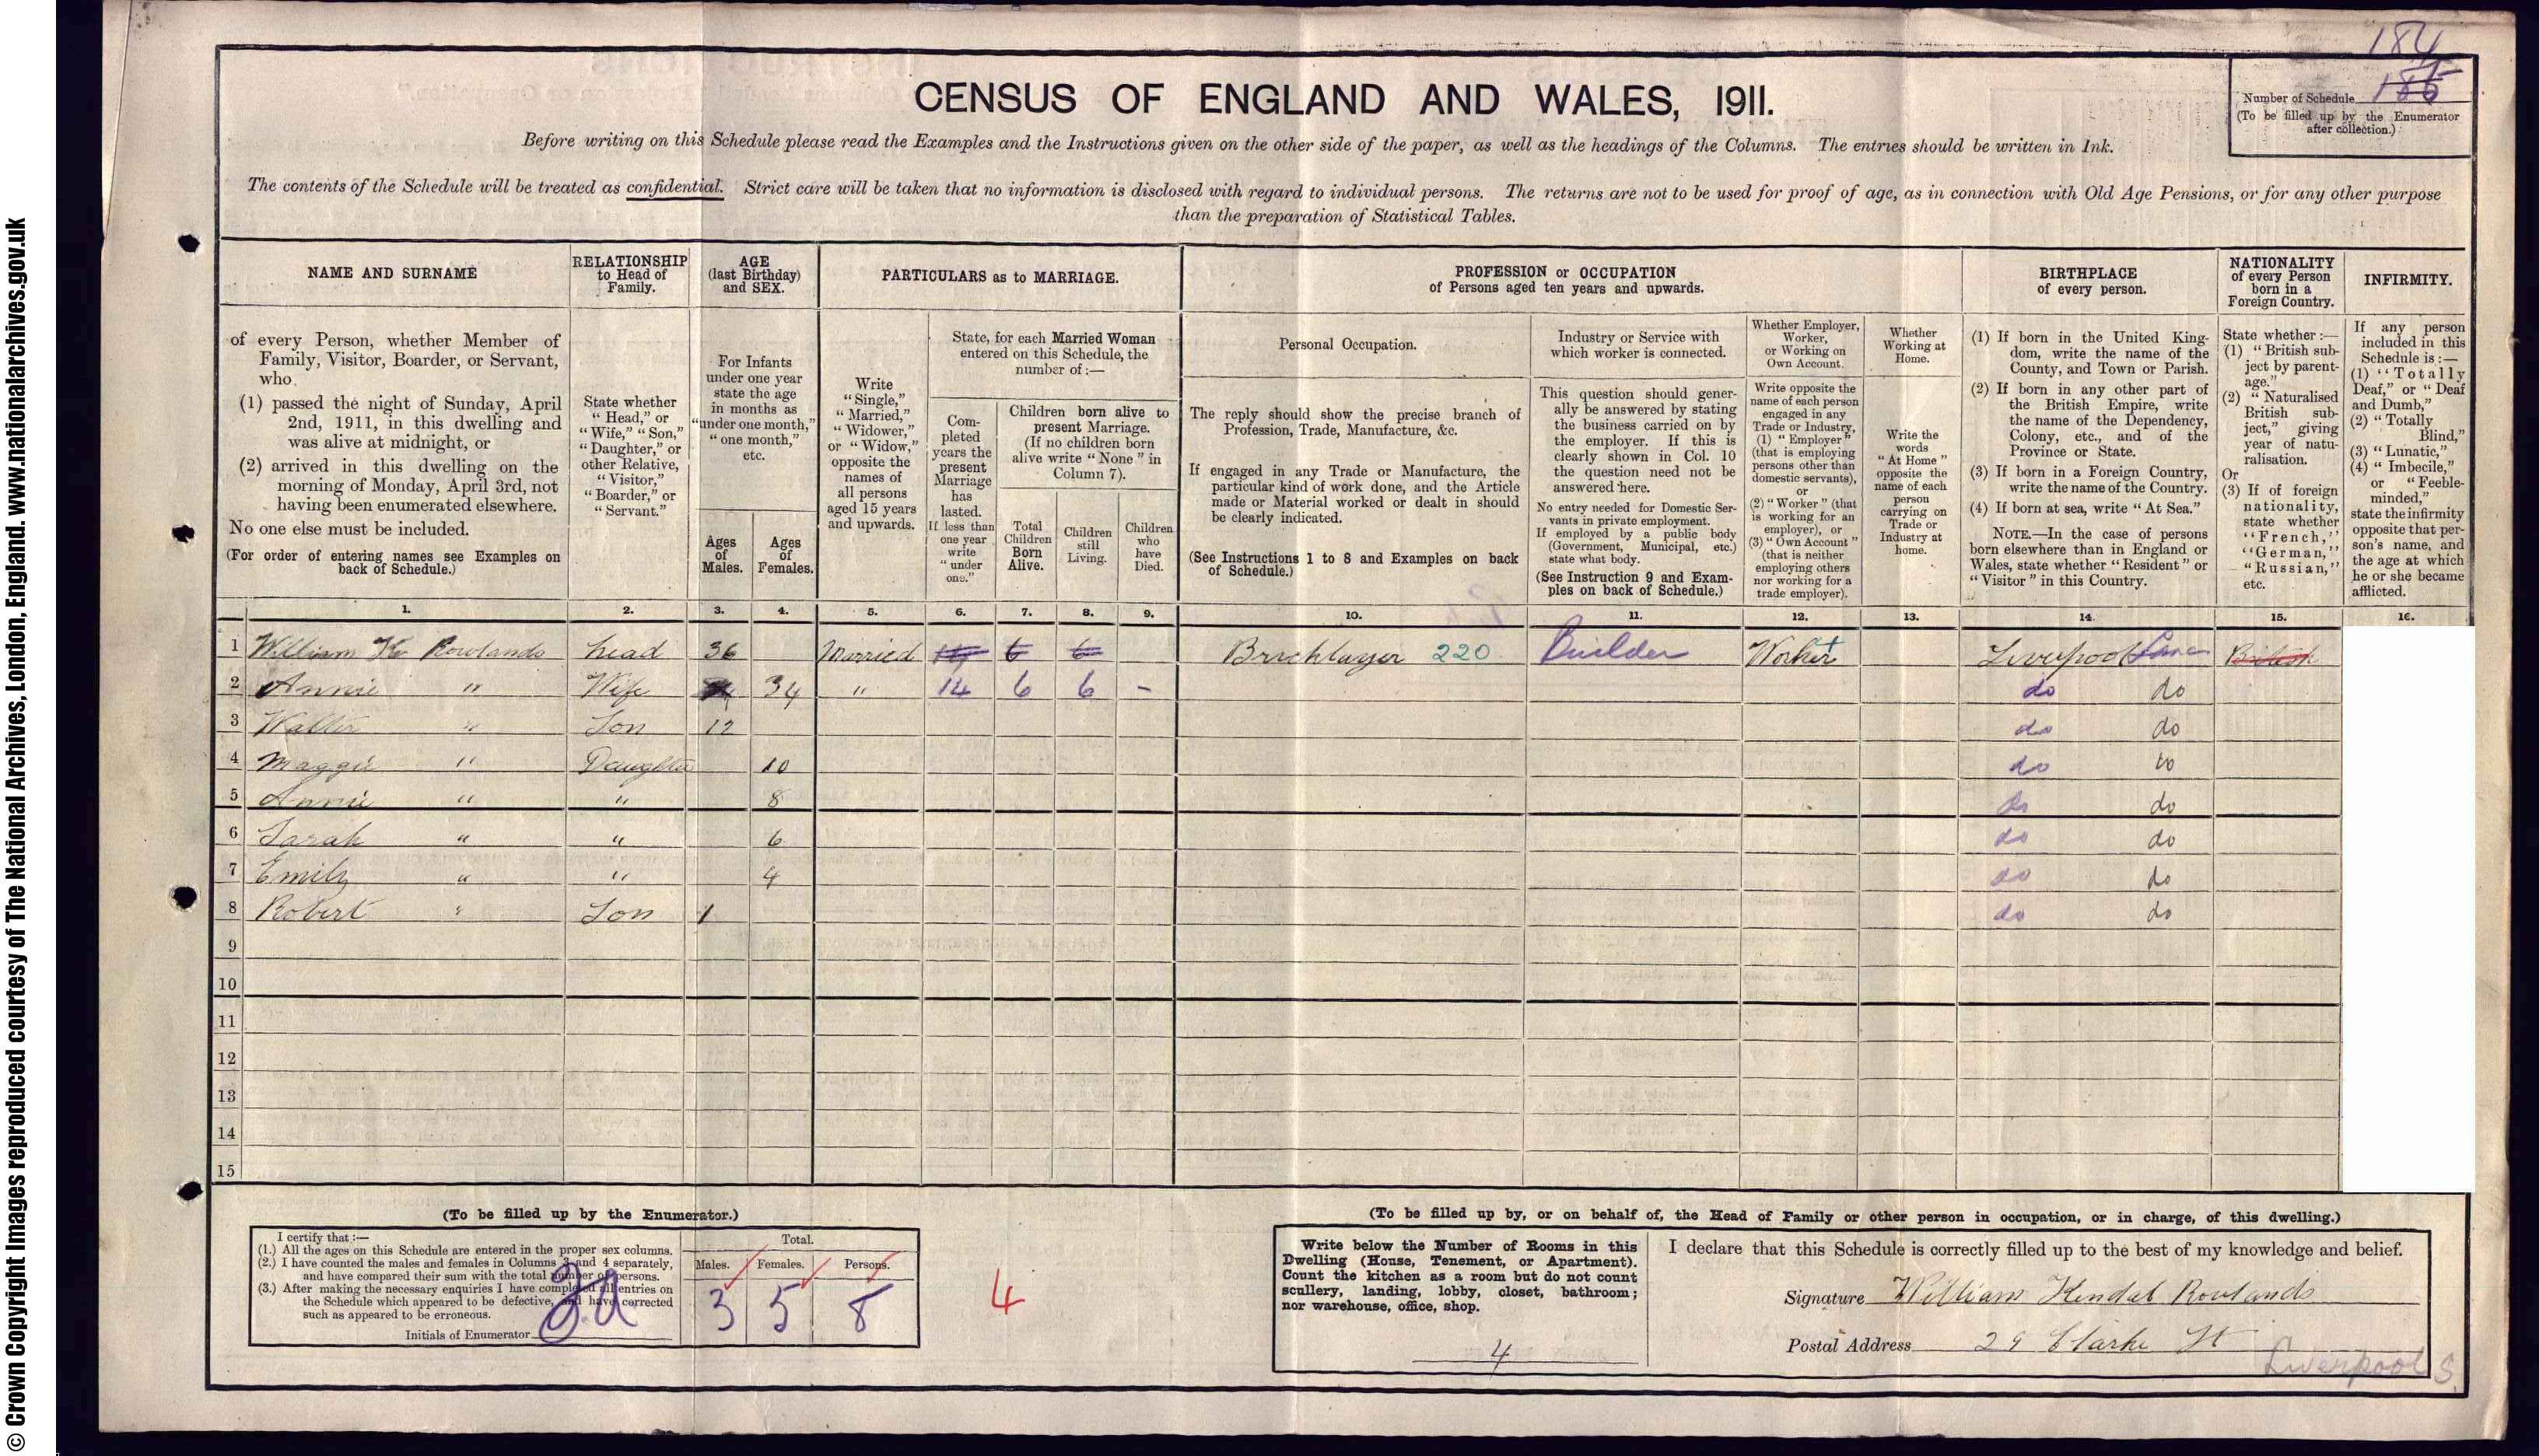 184
CENSUS OF ENGLAND AND WALES, 1911.
Number of Schedule
(To be filled up by the Enumerator
after collection.)
Before writing on this Schedule please read the Examples and the Instructions given on the other side of the paper, as well as the headings of the Columns. The entries should be written in Ink.
The contents of the Schedule will be treated as confidential. Strict care will be taken that no information is disclosed with regard to individual persons. The returns are not to be used for proof of age, as in connection with Old Age Pensions, or for any other purpose
than the preparation of Statistical Tables.
NAME AND SURNAME
of every Person, whether Member of
Family, Visitor, Boarder, or Servant,
who
(1) passed the night of Sunday, April
2nd, 1911, in this dwelling and
was alive at midnight, or
(2) arrived in this dwelling on the
morning of Monday, April 3rd, not
having been enumerated elsewhere.
No one else must be included.
(For order of entering names see Examples on
back of Schedule.)
RELATIONSHIP
to Head of
Family.
State whether
"Head," or
"Wife," "Son,"
"Daughter," or
other Relative,
"Visitor,"
"Boarder," or
"Servant."
AGE
(last Birthday)
and SEX.
For Infants
under one year
state the age
in months as
"under one month,"
"one month,"
etc.
Ages
of
Males.
Ages
of
Females.
PARTICULARS as to MARRIAGE.
Write
"Single,"
"Married,"
"Widower,"
or "Widow,"
opposite the
names of
all persons
aged 15 years
and upwards.
State, for each Married Woman
entered on this Schedule, the
number of :—
Com-
pleted
years the
present
Marriage
has
lasted.
If less than
one year
write
"under
one."
Children born alive to
present Marriage.
(If no children born
alive write "None" in
Column 7).
Total
Children
Born
Alive.
Children
still
Living.
Children
who
have
Died.
PROFESSION or OCCUPATION
of Persons aged ten years and upwards.
Personal Occupation.
The reply should show the precise branch of
Profession, Trade, Manufacture, &c.
If engaged in any Trade or Manufacture, the
particular kind of work done, and the Article
made or Material worked or dealt in should
be clearly indicated.
(See Instructions 1 to 8 and Examples on back
of Schedule.)
Industry or Service with
which worker is connected.
This question should gener-
ally be answered by stating
the business carried on by
the employer. If this is
clearly shown in Col. 10
the question need not be
answered here.
No entry needed for Domestic Ser-
vants in private employment.
If employed by a public body
(Government, Municipal, etc.)
state what body.
(See Instruction 9 and Exam-
ples on back of Schedule.)
Whether Employer,
Worker,
or Working on
Own Account.
Write opposite the
name of each person
engaged in any
Trade or Industry,
(1) "Employer"
(that is employing
persons other than
domestic servants),
or
(2) "Worker" (that
is working for an
employer), or
(3) "Own Account"
(that is neither
employing others
nor working for a
trade employer).
Whether
Working at
Home.
Write the
words
"At Home"
opposite the
name of each
person
carrying on
Trade or
Industry at
home.
BIRTHPLACE
of every person.
(1) If born in the United King-
dom, write the name of the
County, and Town or Parish.
(2) If born in any other part of
the British Empire, write
the name of the Dependency,
Colony, etc., and of the
Province or State.
(3) If born in a Foreign Country,
write the name of the Country.
(4) If born at sea, write "At Sea."
NOTE.—In the case of persons
born elsewhere than in England or
Wales, state whether "Resident" or
"Visitor" in this Country.
NATIONALITY
of every Person
born in a
Foreign Country.
State whether :—
(1) "British sub-
ject by parent-
age."
(2) "Naturalised
British sub-
ject," giving
year of natu-
ralisation.
Or
(3) If of foreign
nationality,
state whether
"French,"
"German,"
"Russian,"
etc.
INFIRMITY.
If any person
included in this
Schedule is :—
(1) "Totally
Deaf," or "Deaf
and Dumb,"
(2) "Totally
Blind,"
(3) "Lunatic,"
(4) "Imbecile,"
or "Feeble-
minded,"
state the infirmity
opposite that per-
son's name, and
the age at which
he or she became
afflicted.
1. 2. 3. 4. 5. 6. 7. 8. 9. 10. 11. 12. 13. 14. 15. 16.
1 William K Rowlands head 36 Married 14 6 6 Bricklayer 220 Builder Worker Liverpool Lancs British
2 Annie " Wife 34 " 14 6 6 - do do
3 Walter " Son 12 do do
4 Maggie " Daughter 10 do do
5 Annie " " 8 do do
6 Sarah " " 6 do do
7 Emily " " 4 do do
8 Robert " Son 1 do do
9
10
11
12
13
14
15
(To be filled up by the Enumerator.)
I certify that :—
(1.) All the ages on this Schedule are entered in the proper sex columns.
(2.) I have counted the males and females in Columns 3 and 4 separately,
and have compared their sum with the total number of persons.
(3.) After making the necessary enquiries I have completed all entries on
the Schedule which appeared to be defective, and have corrected
such as appeared to be erroneous.
Initials of Enumerator
Total.
Males. Females. Persons.
3 5 8
4
(To be filled up by, or on behalf of, the Head of Family or other person in occupation, or in charge, of this dwelling.)
Write below the Number of Rooms in this
Dwelling (House, Tenement, or Apartment).
Count the kitchen as a room but do not count
scullery, landing, lobby, closet, bathroom;
nor warehouse, office, shop.
4
I declare that this Schedule is correctly filled up to the best of my knowledge and belief.
Signature William Kendal Rowlands
Postal Address 29 Clarke St
Liverpool S.
© Crown Copyright Images reproduced courtesy of The National Archives, London, England. www.nationalarchives.gov.uk